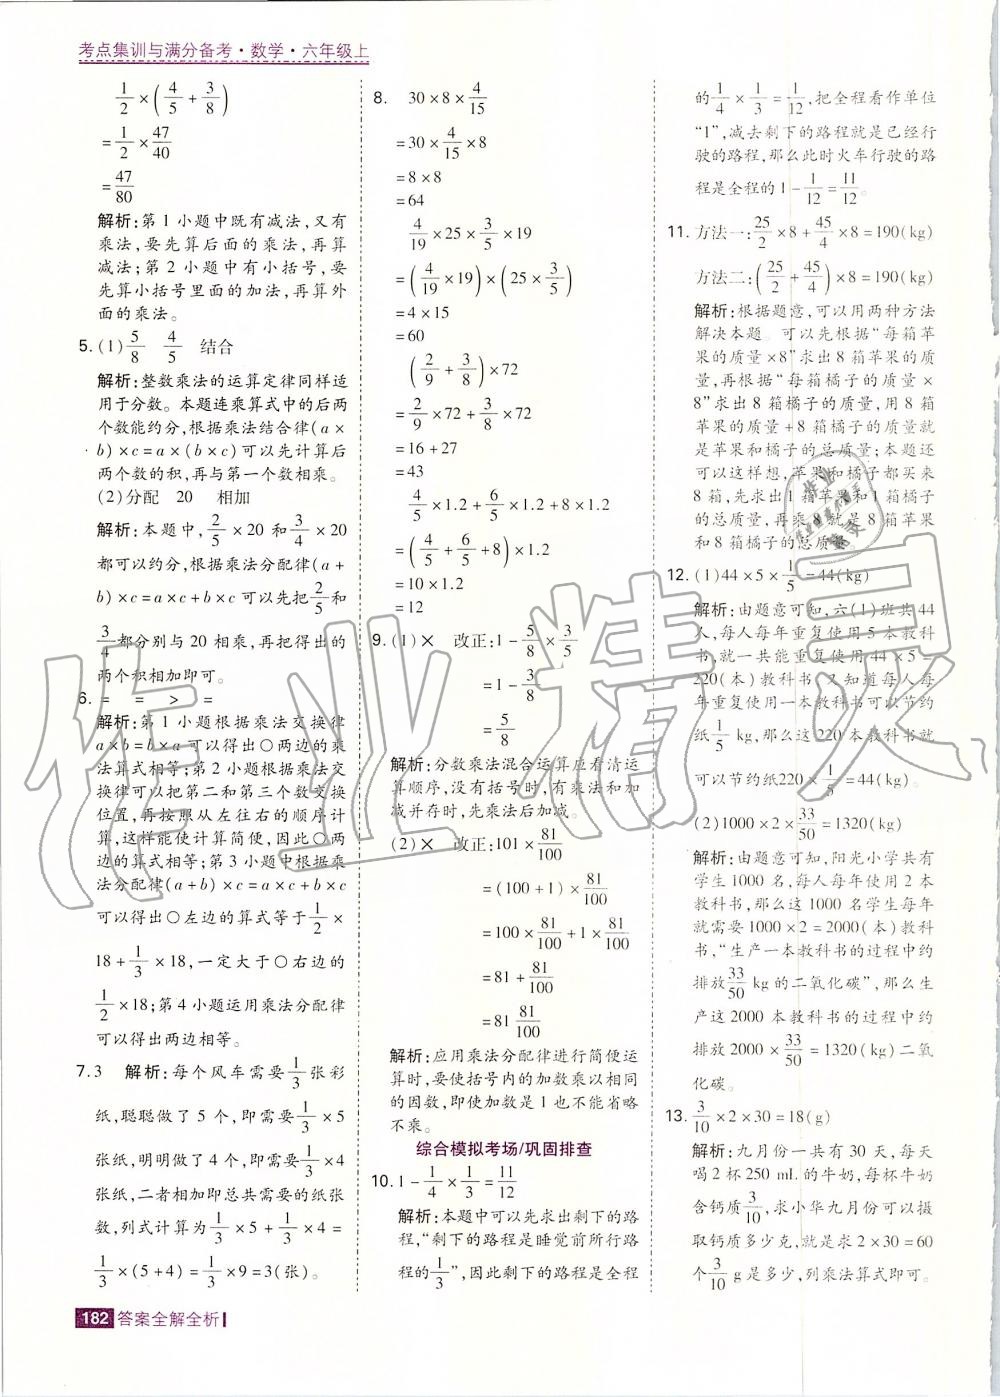 考点集训与满分备考·数学·六年级上
1/2×(4/5+3/8)
=1/2×47/40
=47/80
解析:第1小题中既有减法,又有
乘法,要先算后面的乘法,再算
减法;第2小题中有小括号,要
先算小括号里面的加法,再算外
面的乘法。
5.(1)5/8 4/5 结合
解析:整数乘法的运算定律同样适
用于分数。本题连乘算式中的后两
个数能约分,根据乘法结合律(a×
b)×c=a×(b×c)可以先计算后
两个数的积,再与第一个数相乘。
(2)分配 20 相加
解析:本题中,2/5×20和3/4×20
都可以约分,根据乘法分配律(a+
b)×c=a×c+b×c可以先把2/5和
3/4都分别与20相乘,再把得出的
两个积相加即可。
6.= = > =
解析:第1小题根据乘法交换律
a×b=b×a可以得出○两边的乘
法算式相等;第2小题根据乘法交
换律可以把第二和第三个数交换
位置,再按照从左往右的顺序计
算,这样能使计算简便,因此○两
边的算式相等;第3小题中根据乘
法分配律(a+b)×c=a×c+b×c
可以得出○左边的算式等于1/2×
18+1/3×18,一定大于○右边的
1/2×18;第4小题运用乘法分配律
可以得出两边相等。
7.3 解析:每个风车需要1/3张彩
纸,聪聪做了5个,即需要1/3×5
张纸,明明做了4个,即需要1/3×4
张纸,二者相加即总共需要的纸张
数,列式计算为1/3×5+1/3×4=
1/3×(5+4)=1/3×9=3(张)。
8. 30×8×4/15
=30×4/15×8
=8×8
=64
4/19×25×3/5×19
=(4/19×19)×(25×3/5)
=4×15
=60
(2/9+3/8)×72
=2/9×72+3/8×72
=16+27
=43
4/5×1.2+6/5×1.2+8×1.2
=(4/5+6/5+8)×1.2
=10×1.2
=12
9.(1)× 改正:1-5/8×3/5
=1-3/8
=5/8
解析:分数乘法混合运算应看清运
算顺序,没有括号时,有乘法和加
减并存时,先乘法后加减。
(2)× 改正:101×81/100
=(100+1)×81/100
=100×81/100+1×81/100
=81+81/100
=81 81/100
解析:应用乘法分配律进行简便运
算时,要使括号内的加数乘以相同
的因数,即使加数是1也不能省略
不乘。
综合模拟考场/巩固排查
10.1-1/4×1/3=11/12
解析:本题中可以先求出剩下的路
程,“剩下的路程是睡觉前所行路
程的1/3”,因此剩下的路程是全程
的1/4×1/3=1/12,把全程看作单位
“1”,减去剩下的路程就是已经行
驶的路程,那么此时火车行驶的路
程是全程的1-1/12=11/12。
11.方法一:25/2×8+45/4×8=190(kg)
方法二:(25/2+45/4)×8=190(kg)
解析:根据题意,可以用两种方法
解决本题。可以先根据“每箱苹
果的质量×8”求出8箱苹果的质
量,再根据“每箱橘子的质量×
8”求出8箱橘子的质量,用8箱
苹果的质量+8箱橘子的质量就
是苹果和橘子的总质量;本题还
可以这样想,苹果和橘子都买来
8箱,先求出1箱苹果和1箱橘子
的总质量,再乘8就是8箱苹果
和8箱橘子的总质量。
12.(1)44×5×1/5=44(kg)
解析:由题意可知,六(1)班共44
人,每人每年重复使用5本教科
书,就一共能重复使用44×5=
220(本)教科书,又知道每人每
年重复使用一本教科书可以节约
纸1/5kg,那么这220本教科书就
可以节约纸220×1/5=44(kg)。
(2)1000×2×33/50=1320(kg)
解析:由题意可知,阳光小学共有
学生1000名,每人每年使用2本
教科书,那么这1000名学生每年
就需要1000×2=2000(本)教科
书,“生产一本教科书的过程中约
排放33/50 kg的二氧化碳”,那么生
产这2000本教科书的过程中约
排放2000×33/50=1320(kg)二氧
化碳。
13.3/10×2×30=18(g)
解析:九月份一共有30天,每天
喝2杯250 mL的牛奶,每杯牛奶
含钙质3/10g,求小华九月份可以摄
取钙质多少克,就是求2×30=60
个3/10g是多少,列乘法算式即可。
182 答案全解全析
作业精灵